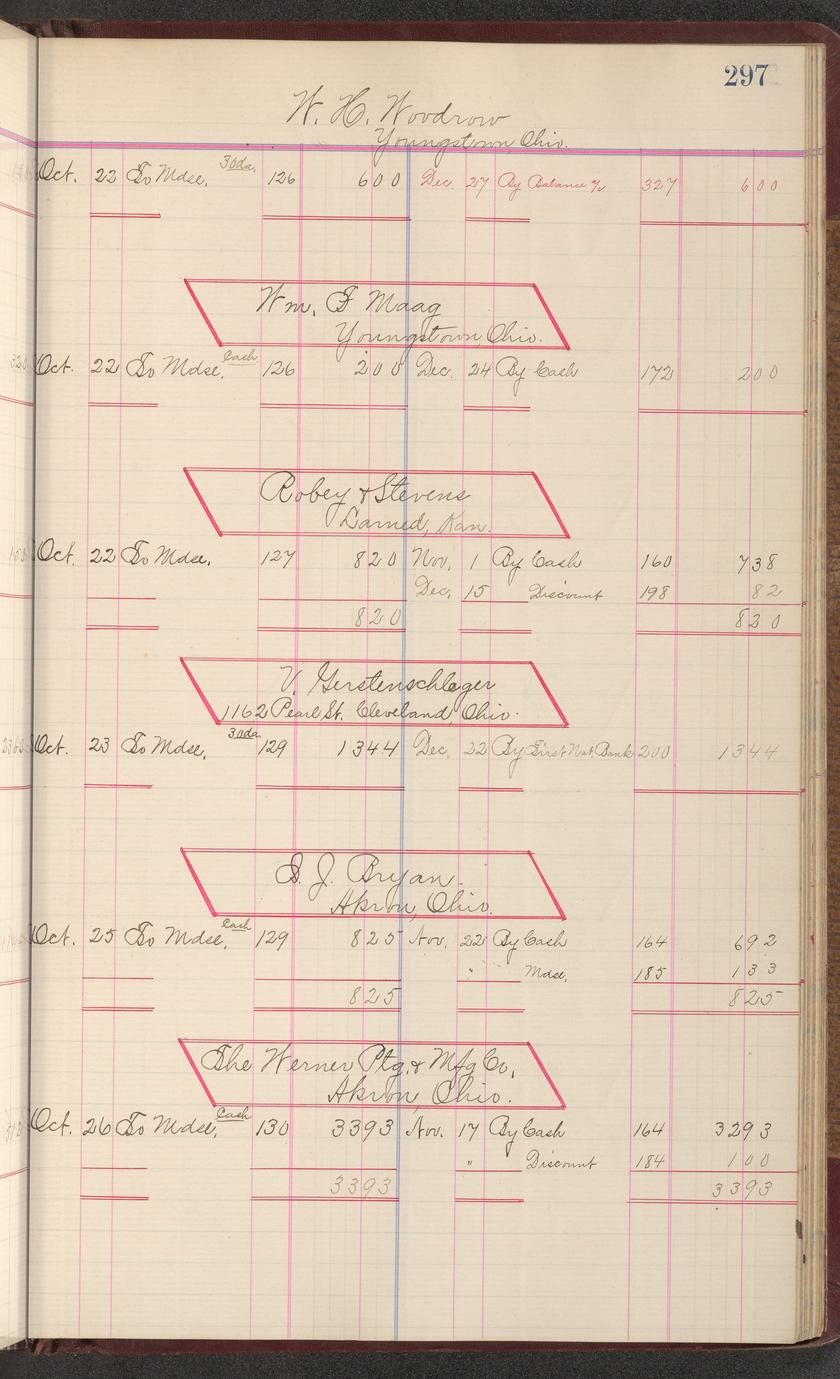 297
W. H. Woodrow
Youngstown, Ohio.
Oct. 22 To Mdse. 30da. 126 600 Dec. 27 By Balance % 327 600
Wm. F Maag
Youngstown, Ohio.
Oct. 22 To Mdse. Cash 126 200 Dec. 24 By Cash 172 200
Robey & Stevens
Larned, Kan.
Oct. 22 To Mdse. 127 820 Nov. 1 By Cash 160 738
Dec. 15 Discount 198 82
820 820
V. Gerstenschleger
1162 Pearl St. Cleveland, Ohio.
Oct. 23 To Mdse. 30da. 129 1344 Dec. 22 By First Nat. Bank 200 1344
S. J. Bryan.
Akron, Ohio.
Oct. 25 To Mdse. Cash 129 825 Nov. 22 By Cash 164 692
" Mdse. 185 133
825 825
The Werner Ptg. & Mfg Co.
Akron, Ohio.
Oct. 26 To Mdse. Cash 130 3393 Nov. 17 By Cash 164 3293
" Discount 184 100
3393 3393